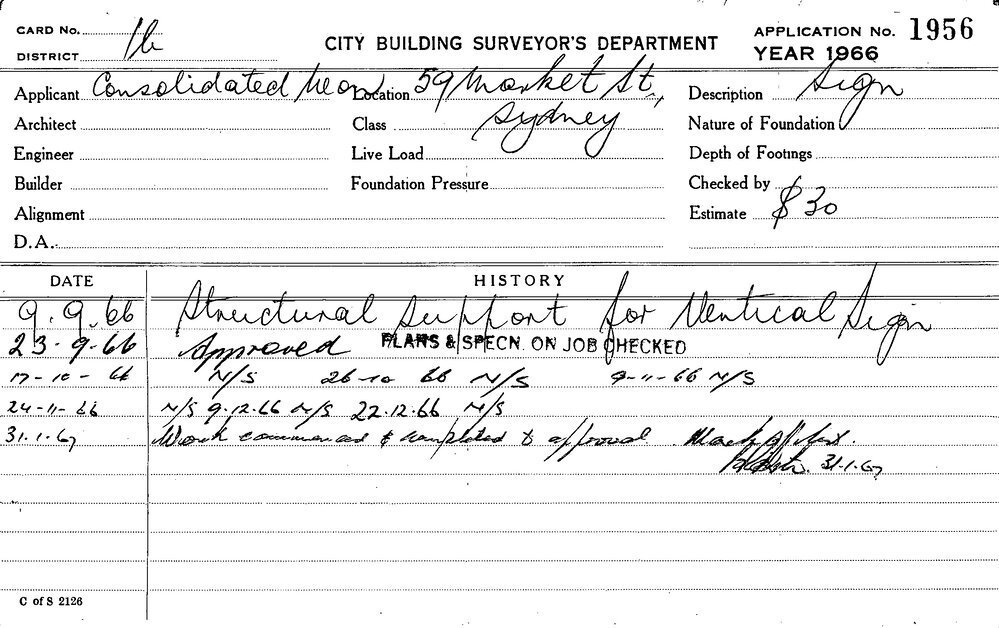 CARD No.
DISTRICT 1b
CITY BUILDING SURVEYOR'S DEPARTMENT
APPLICATION No. 1956
YEAR 1966
Applicant Consolidated Neon Location 59 Market St., Description Sign
Architect Class Sydney Nature of Foundation
Engineer Live Load Depth of Footings
Builder Foundation Pressure Checked by
Alignment Estimate $30
D.A.
DATE HISTORY
9.9.66 Structural support for Vertical Sign
23-9-66 Approved PLANS & SPECN. ON JOB CHECKED
17-10-66 N/S 26-10 66 N/S 9-11-66 N/S
24-11-66 N/S 9.12.66 N/S 22.12.66 N/S
31.1.67 Work commenced & completed to approval
31.1.67
C of S 2126